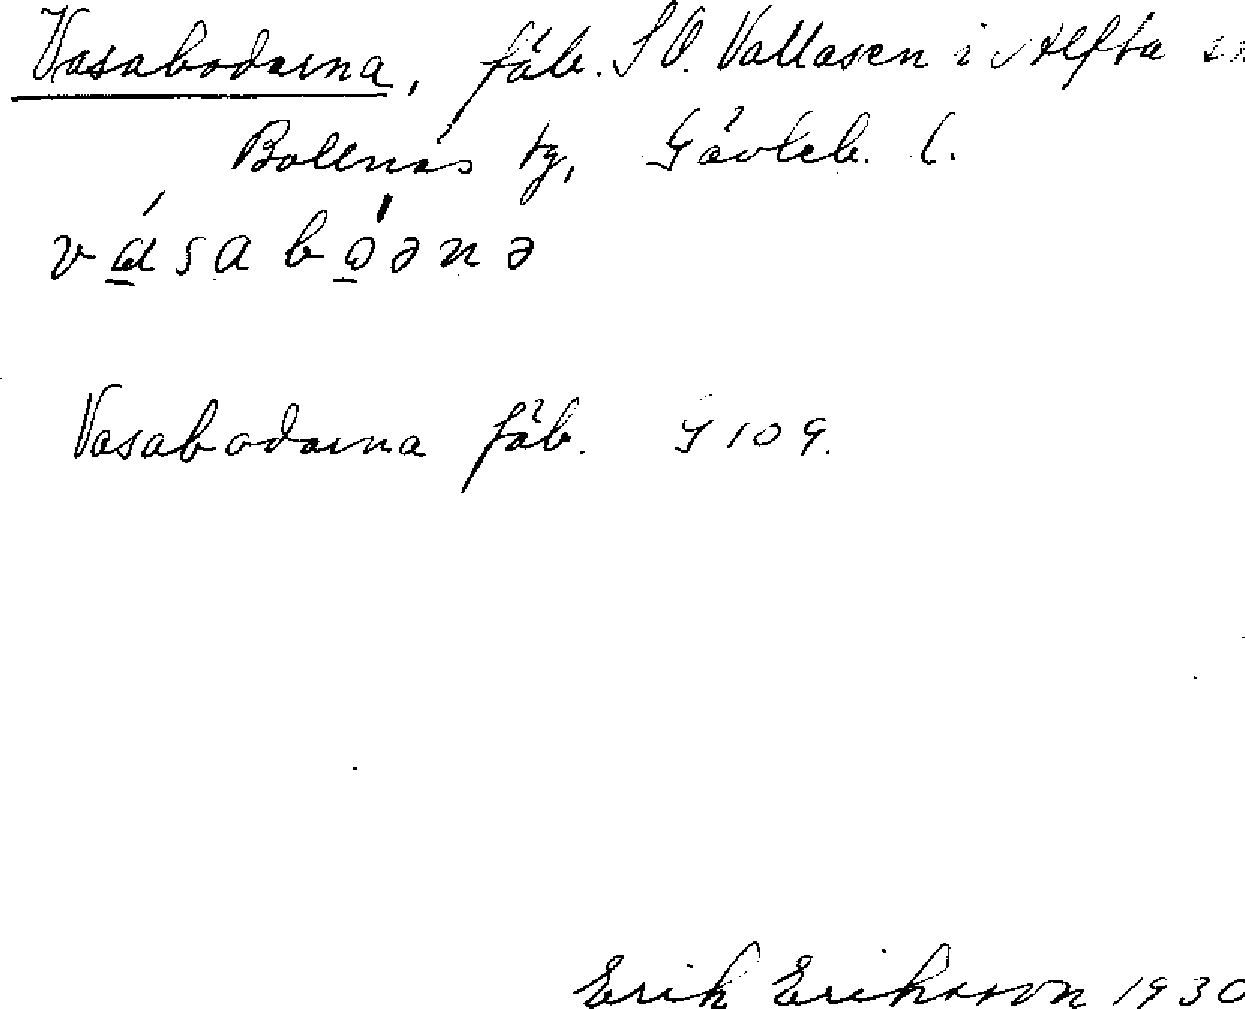 Vasabodarna, fäb. SV. Vallåsen i Alfta sn
Bollnäs tg, Gävleb. l.
vásabóənə
Vasabodarna fäb. G 109.
Erik Eriksson 1930